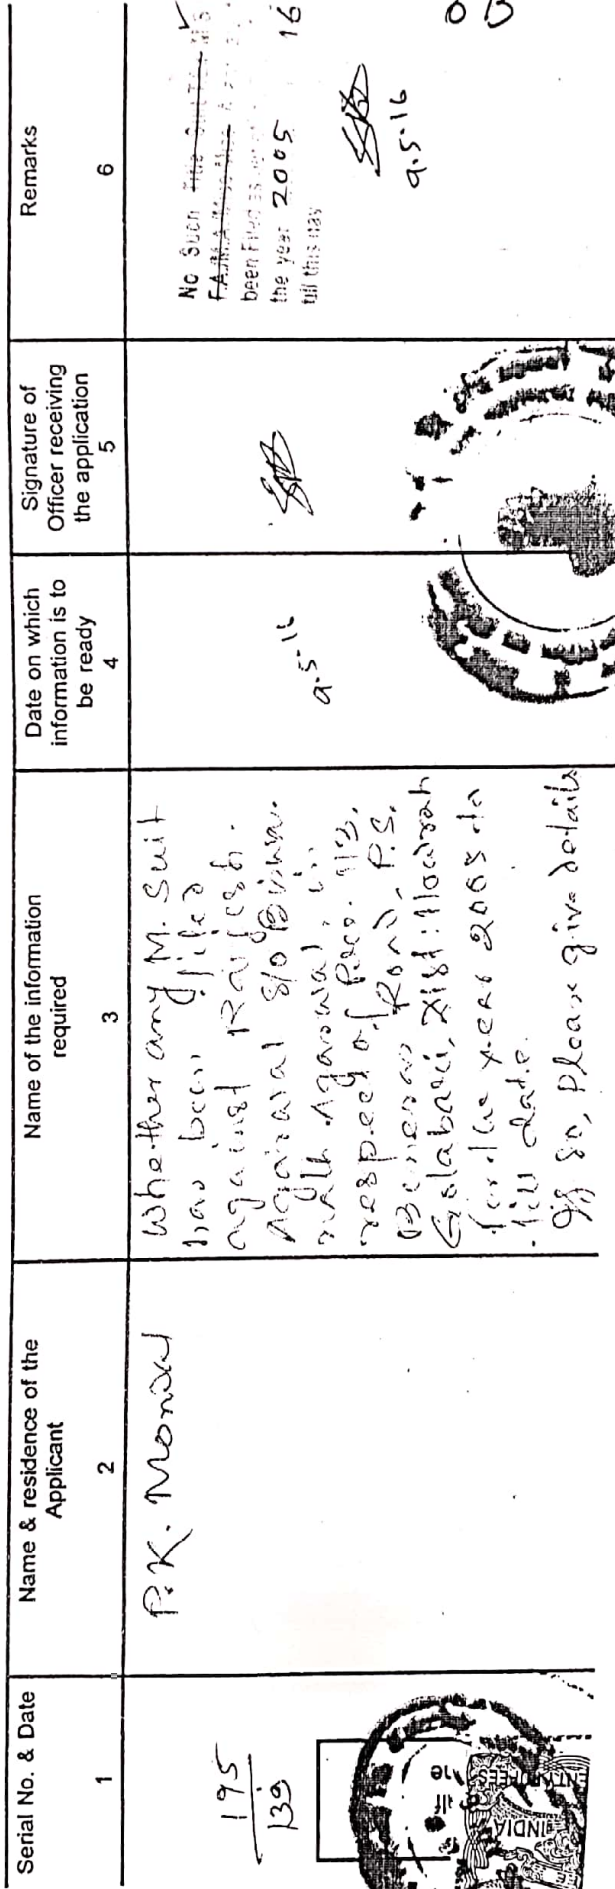 Serial No. & Date
1
Name & residence of the
Applicant
2
Name of the information
required
3
Date on which
information is to
be ready
4
Signature of
Officer receiving
the application
5
Remarks
6
195
139
P.K. Mondal
Whether any M. Suit
has been filed
against Rajesh
Agarwal S/o Biswa
nath Agarwal, in
respect of Prem. 113,
Beneras Road, P.S.
Golabari, Dist: Howrah
for the year 2005 to
till date.
If so, Please give details
9.5.16
No Such Title Suit
F.A./M.A./
been Filed
the year 2005 16
till this day
9.5.16
INDIA
RUPEES